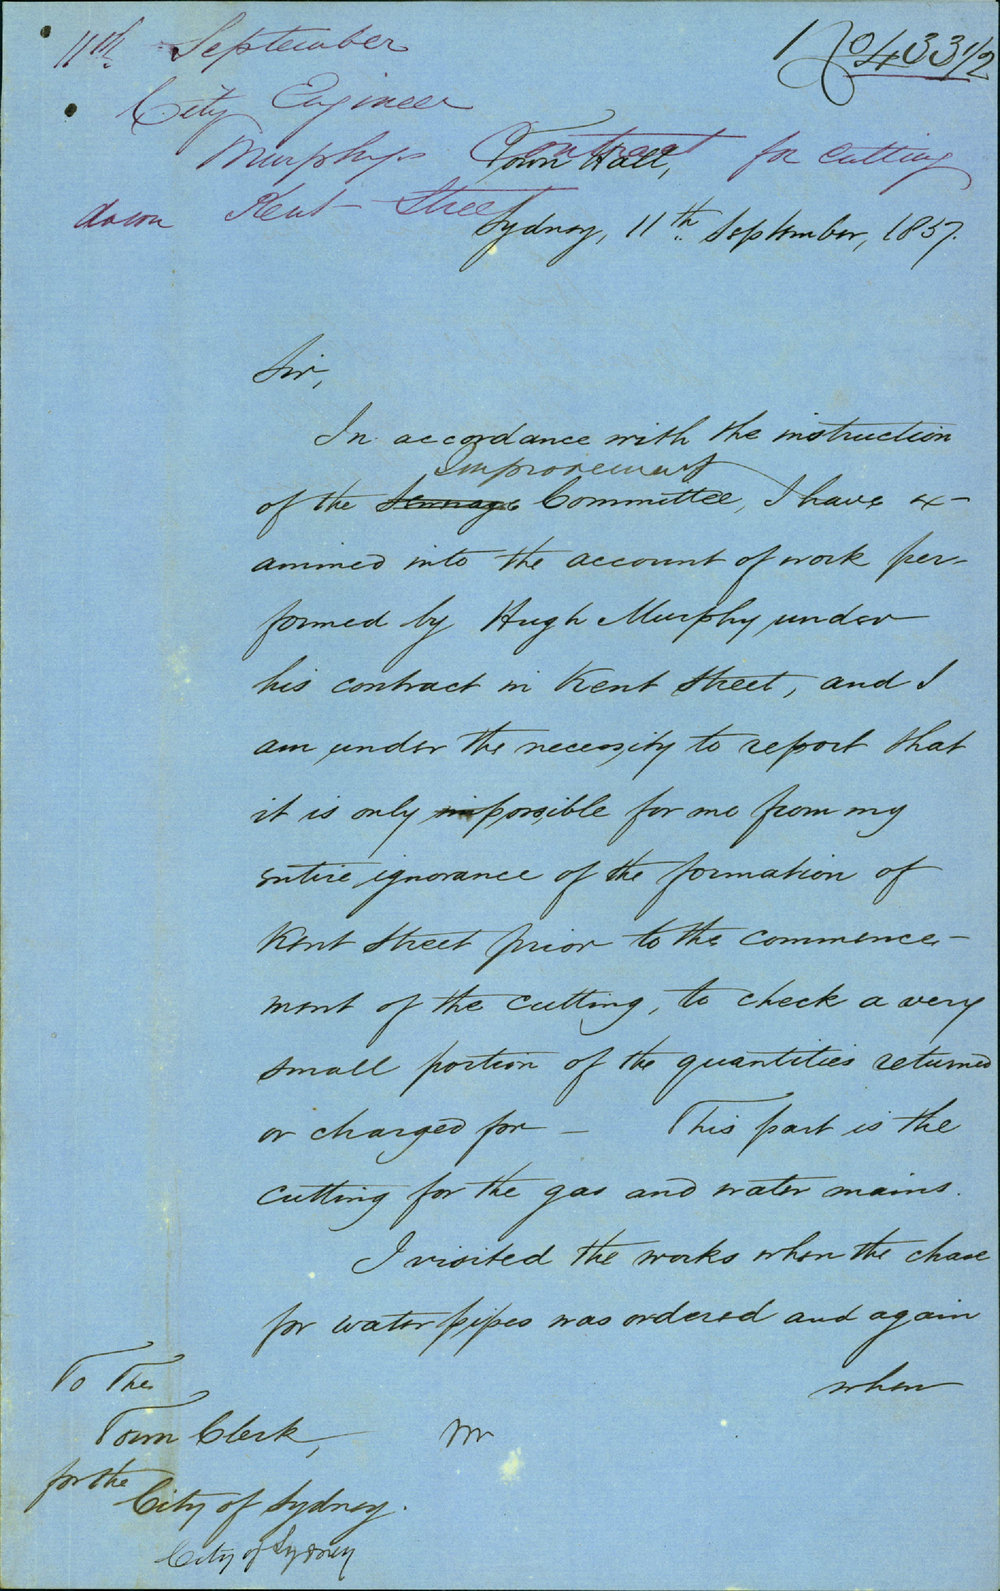 11th September
No 433 1/2
City Engineer
Murphys Contract for cutting
down Kent Street
Town Hall,
Sydney, 11th September, 1857.
Sir,
In accordance with the instruction
Improvement
of the Sewage Committee, I have ex-
amined into the account of work per-
formed by Hugh Murphy under
his contract in Kent Street, and I
am under the necessity to report that
it is only impossible for me from my
entire ignorance of the formation of
Kent Street prior to the commence-
ment of the cutting, to check a very
small portion of the quantities returned
or charged for — This part is the
cutting for the gas and water mains.
I visited the works when the chase
for water pipes was ordered and again
when
To The
Town Clerk,
for the
City of Sydney.
City of Sydney